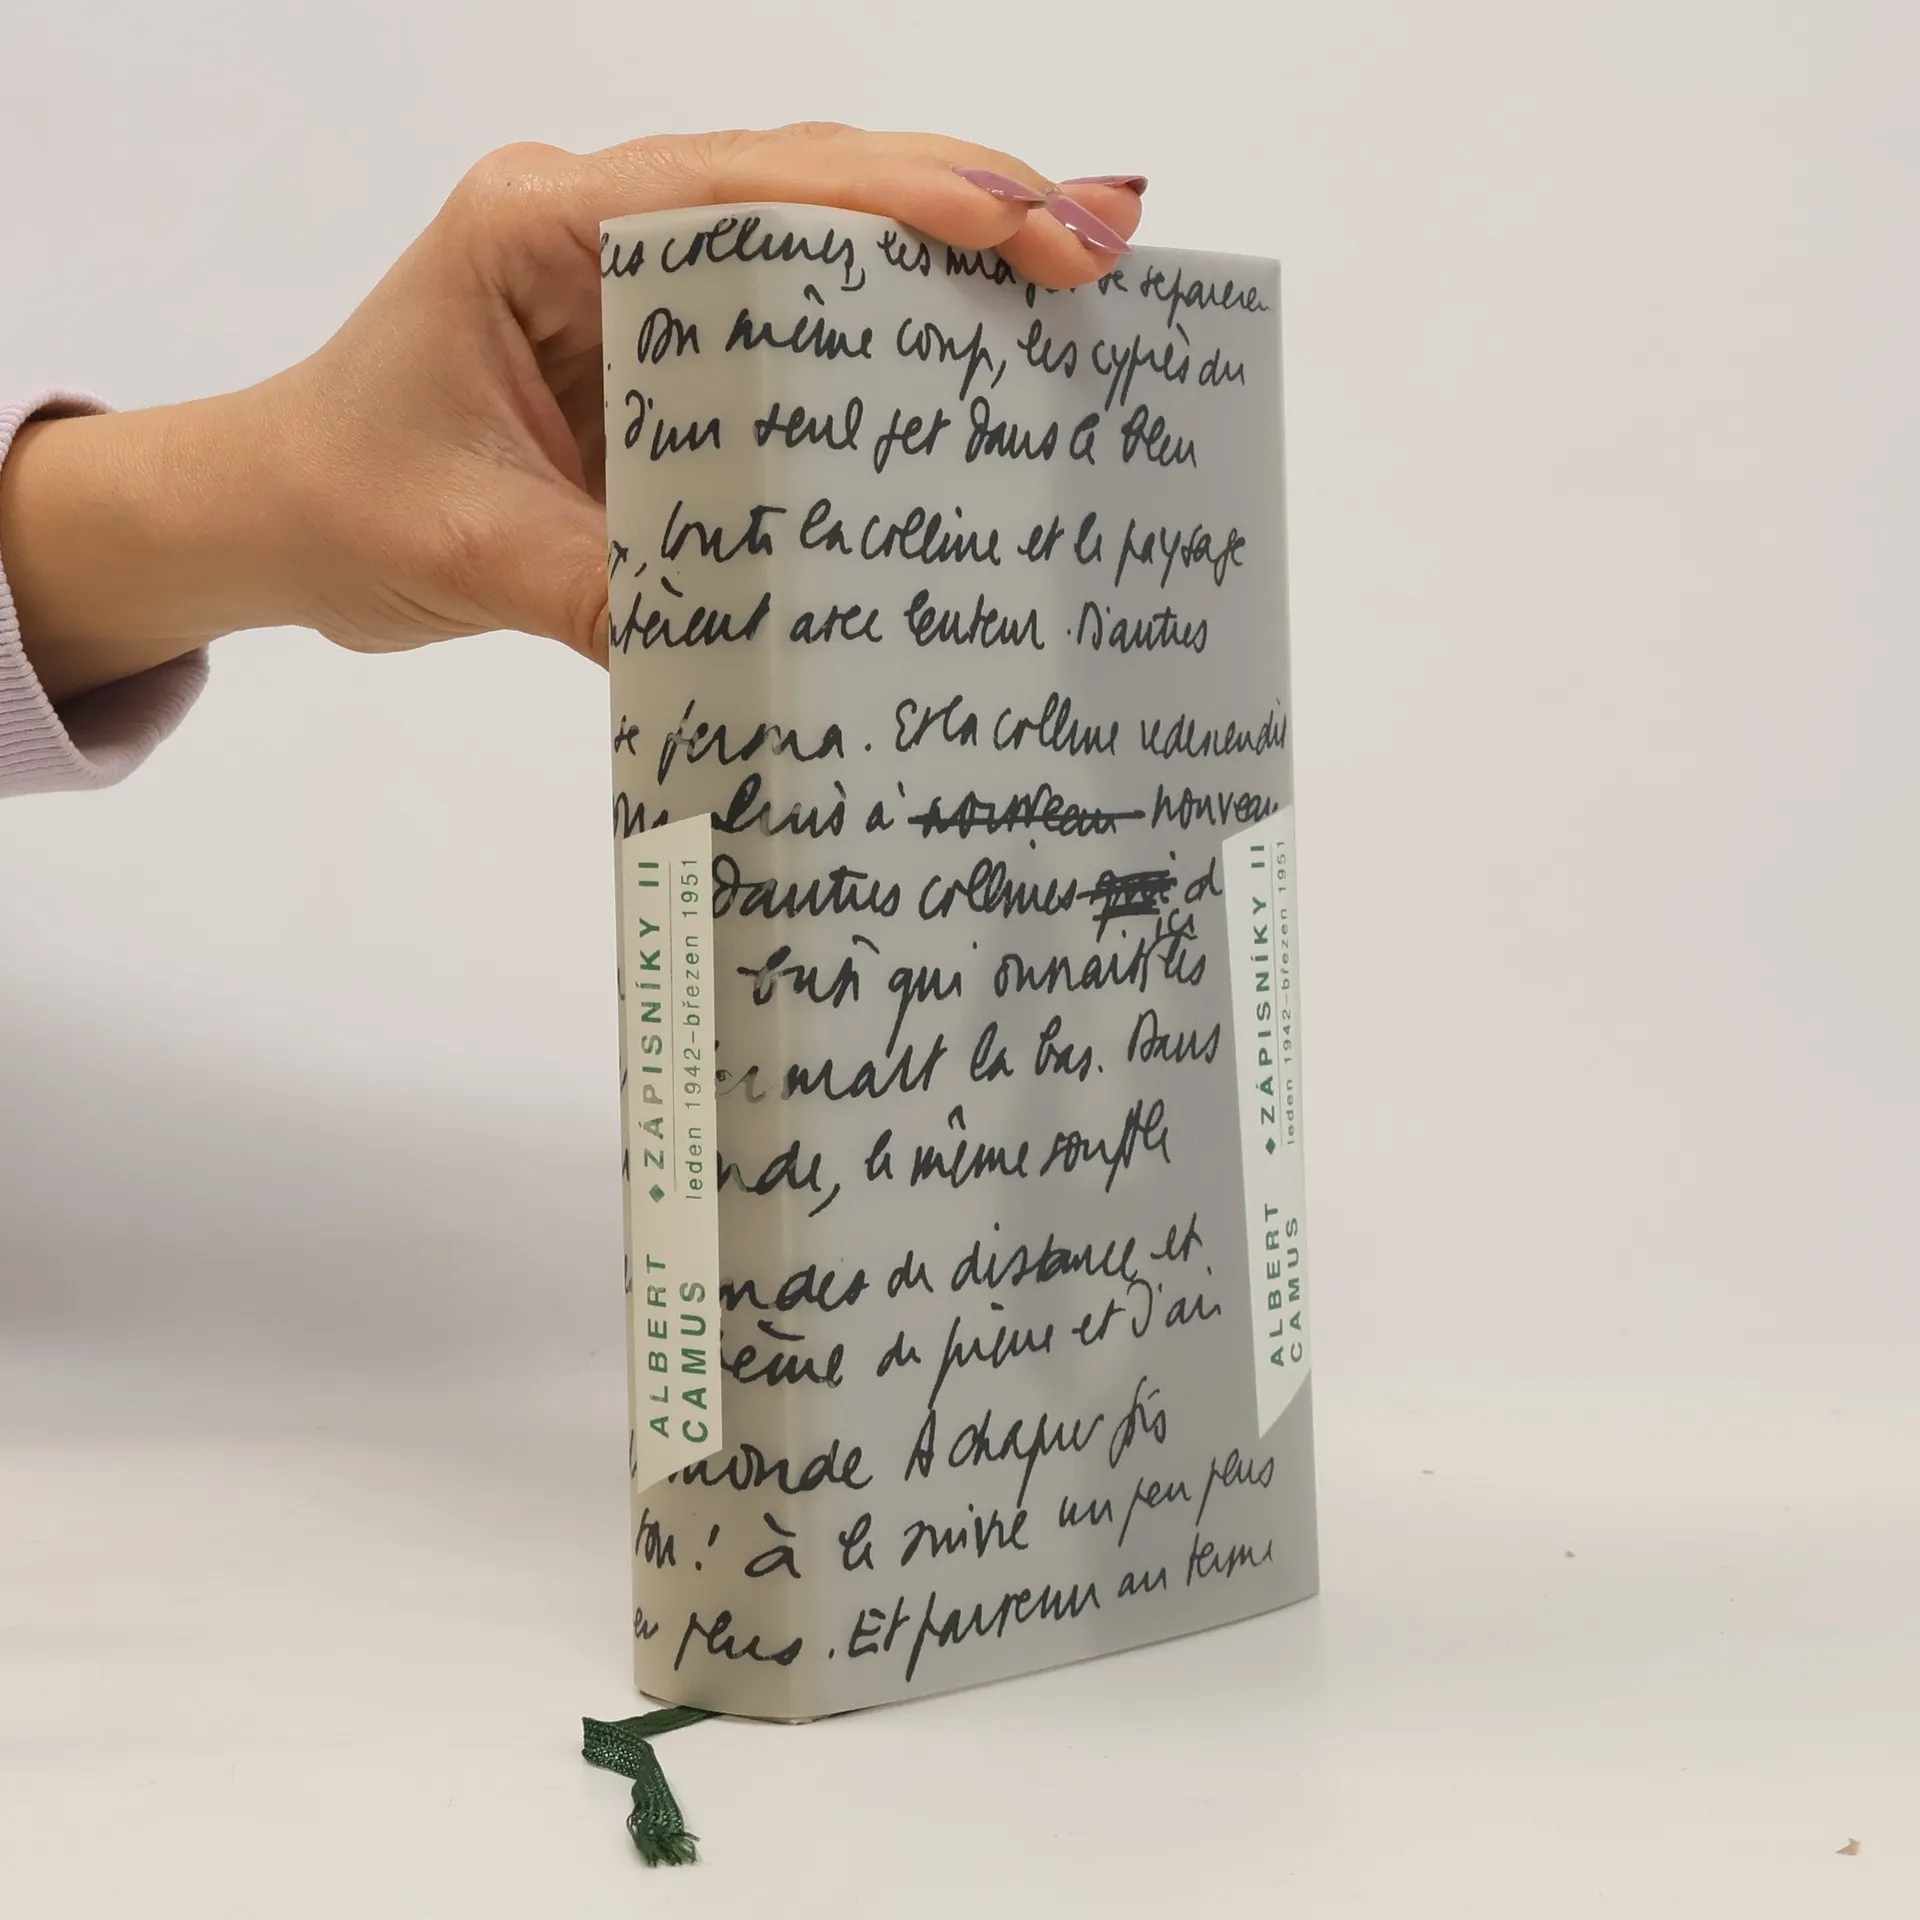 les collines, les se separèren
. Du même coup, les cyprès du
d'un seul jet dans le bleu
, toute la colline et le paysage
avec lenteur. D'autres
se ferma. Et la colline redescendit
à nouveau nouveau
D'autres collines qui d
ici
qui les
la bas. Dans
nde, le même souffle
ndes de distance et
ème de pierre et d'air
monde A chaque fois
ton! à le suivre un peu plus
en plus. Et parvenu au terme
ALBERT CAMUS
◆ZÁPISNÍKY II
leden 1942–březen 1951
ALBERT CAMUS
◆ZÁPISNÍKY II
leden 1942–březen 1951